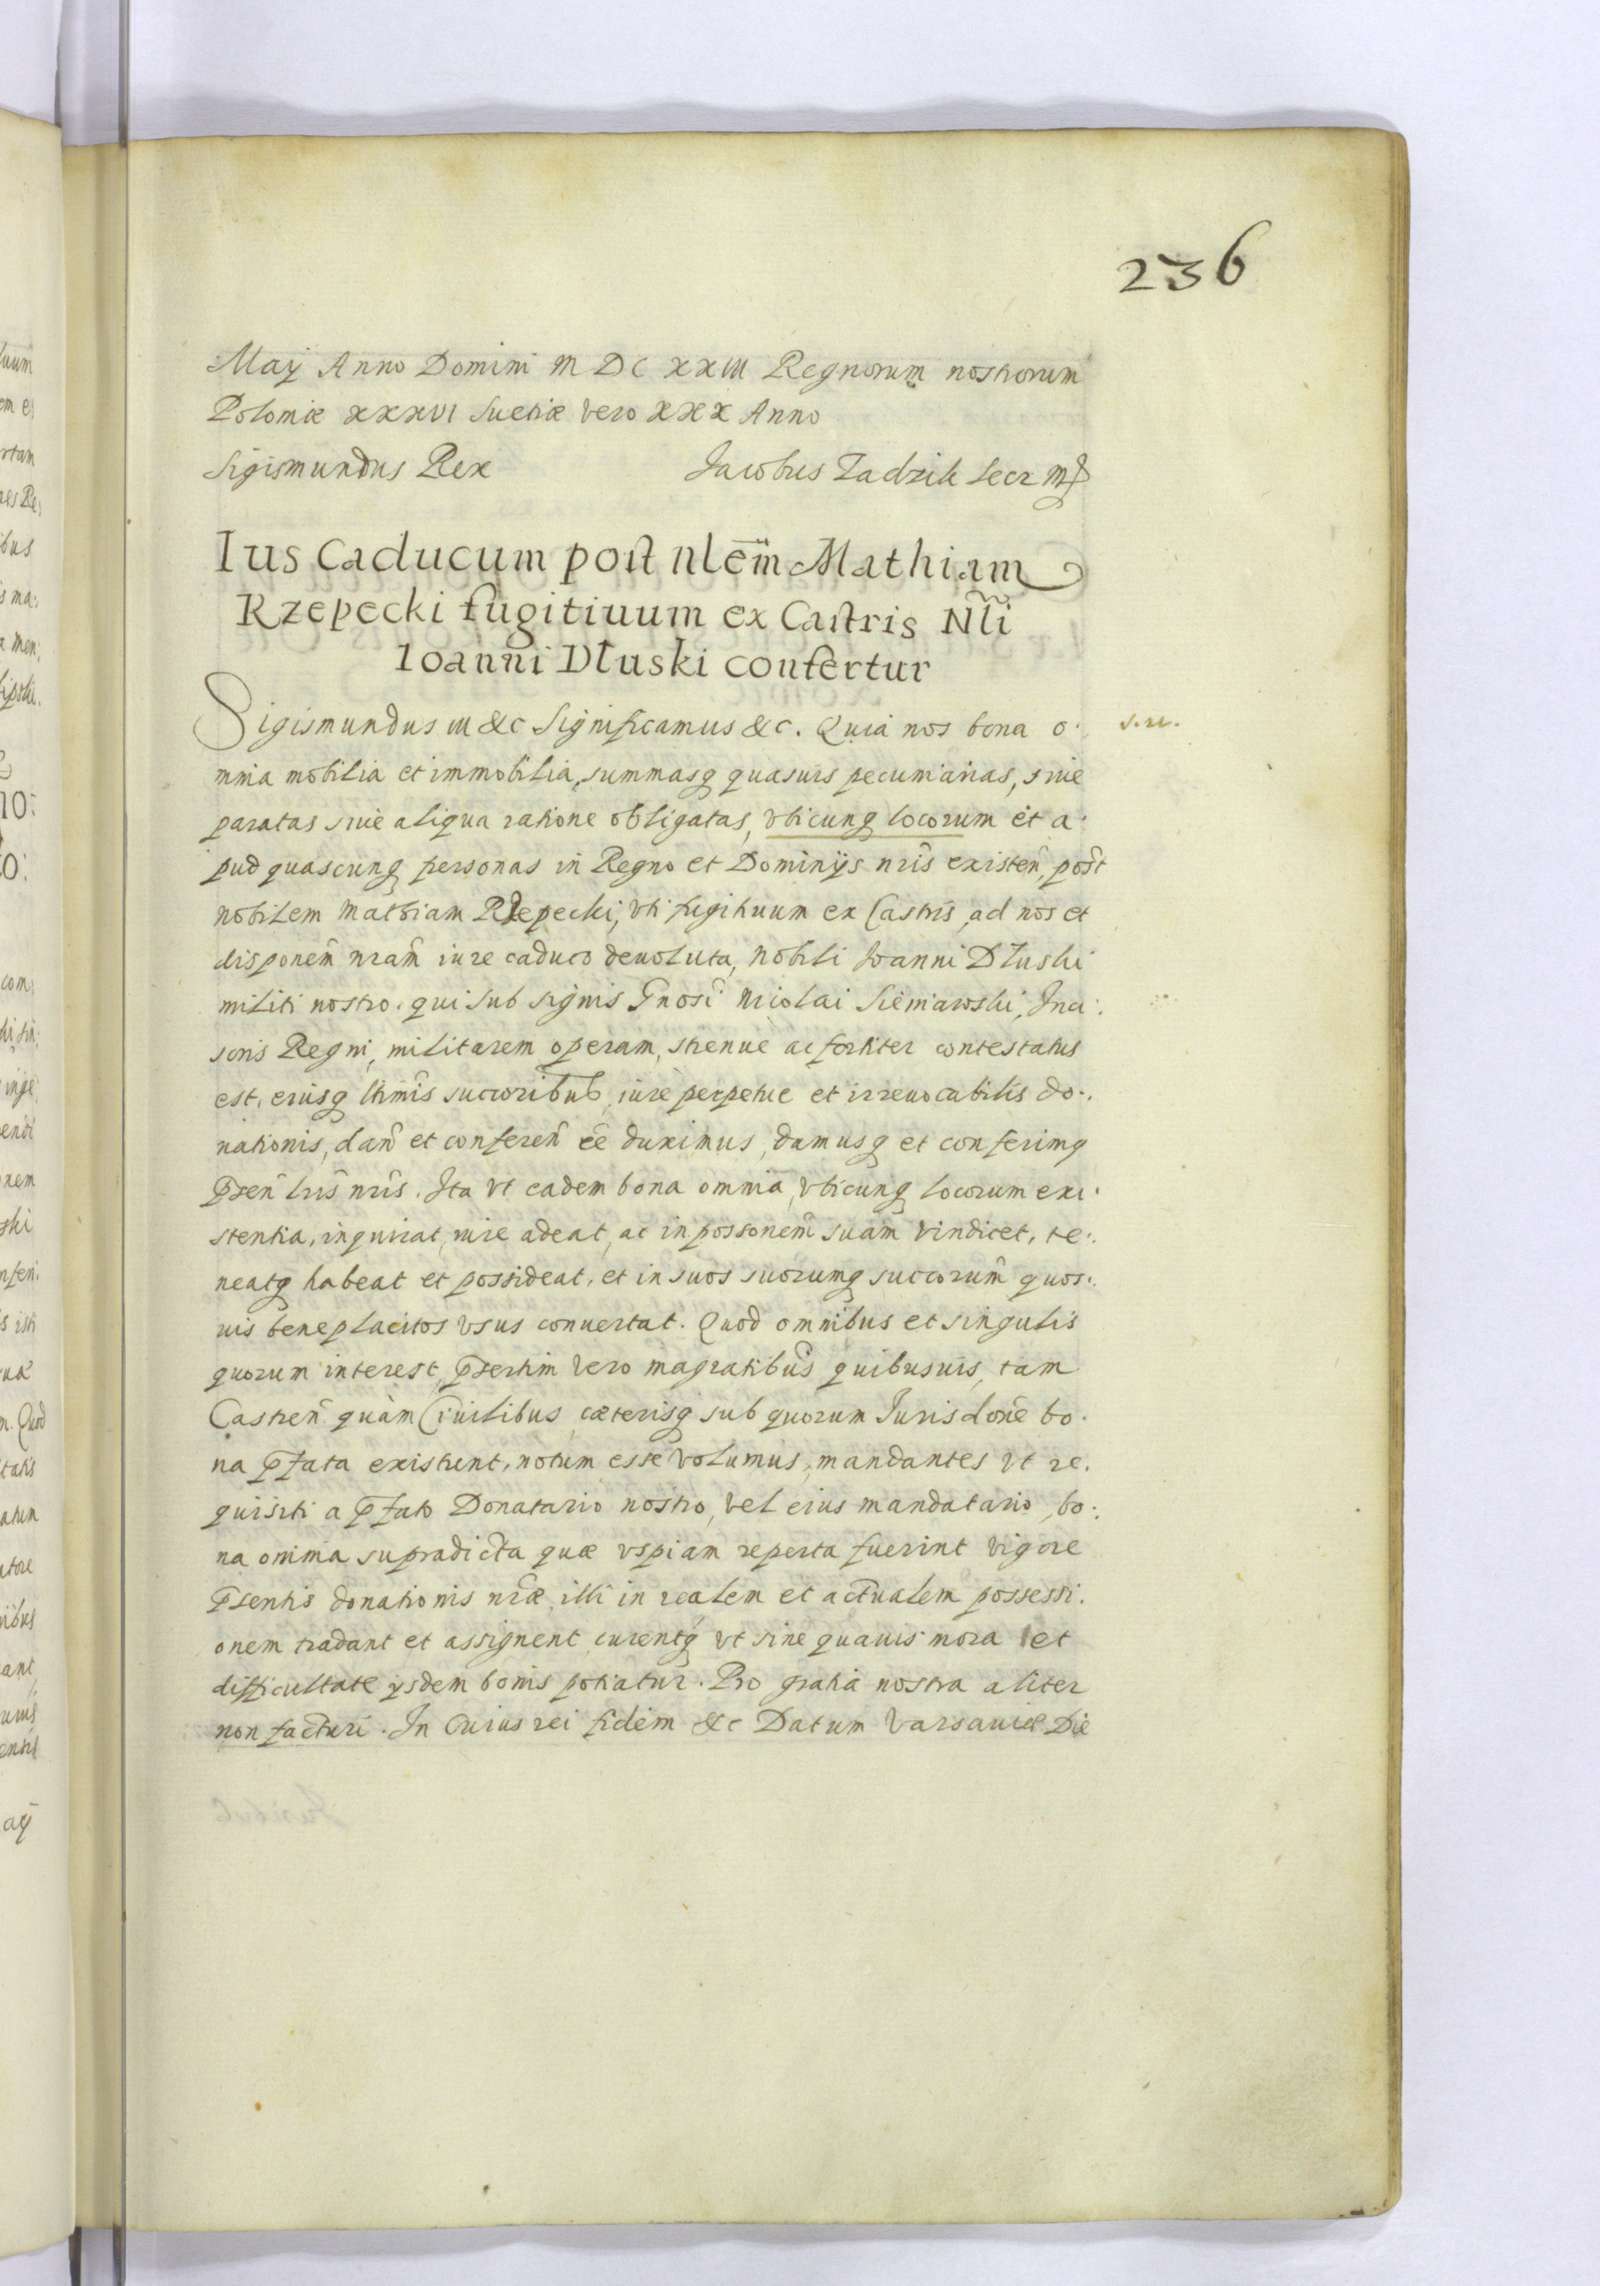 236
Maÿ Anno Domini M DC XXIII Regnorum nostrorum
Poloniæ XXXVI Suetiæ vero XXX Anno
Sigismundus Rex Jacobus Zadzik Secr M
Ius Caducum post Nlem̃ Mathiam
Rzepecki fugitiuum ex Castris Nl̃i
Ioanni Dłuski confertur
Sigismundus III &c Significamus &c. Quia nos bona o:
mnia mobilia et immobilia, summasq quasuis pecuniarias, siue
paratas siue aliqua ratione obligatas, vbicunq locorum et a:
pud quascunq personas in Regno et Dominÿs nris̃ existeñ, post
nobilem Mathiam Rzepecki, vti fugitiuum ex Castris, ad nos et
disponem̃ nram̃ iure caduco deuoluta, Nobili Ioanni Dłuski
militi nostro, qui sub signis Gnosi Nicolai Sieniawski, Inci:
soris Regni, militarem operam, strenue ac fortiter contestatus
est, eiusq ltimis̃ succoribus, iure perpetuæ et irreuocabilis do:
nationis, dañ et confereñ eẽ duximus, damusq et conferimq
p̃señ lris̃ nris̃. Ita vt eadem bona omnia, vbicunq locorum exi:
stentia, inquirat, iure adeat, ac in possonem̃ suam vindicet, te:
neatq habeat et possideat, et in suos suorumq succorum̃ quos:
uis beneplacitos vsus conuertat. Quod omnibus et singulis
quorum interest, p̃sertim vero magratibus̃ quibusuis, tam
Castreñ quàm Ciuilibus, cæterisq sub quorum Jurisdonẽ bo:
na p̃fata existunt, notum esse volumus, mandantes vt re:
quisiti a p̃fato Donatario nostro, vel eius mandatario, bo:
na omnia supradicta quæ vspiam reperta fuerint vigore
p̃sentis donationis nr̃æ, illi in realem et actualem possessi:
onem tradant et assignent, curentq vt sine quauis mora et
difficultate ÿsdem bonis potiatur. Pro gratia nostra aliter
non facturi. In Cuius rei fidem &c Datum Varsauiæ Die